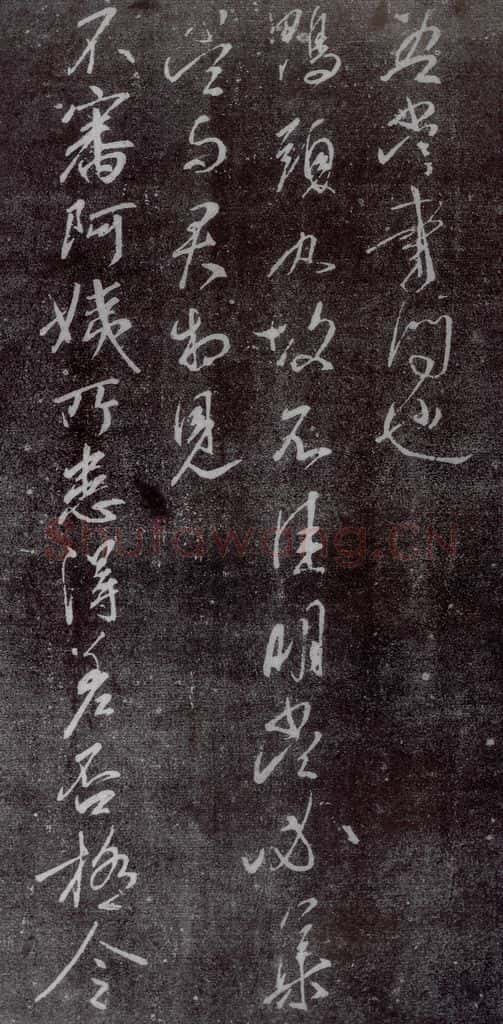 當問也
鴨頭丸故不佳明當必集
當与君相見
不審阿姨所患得差否極令
Shufawang.CN